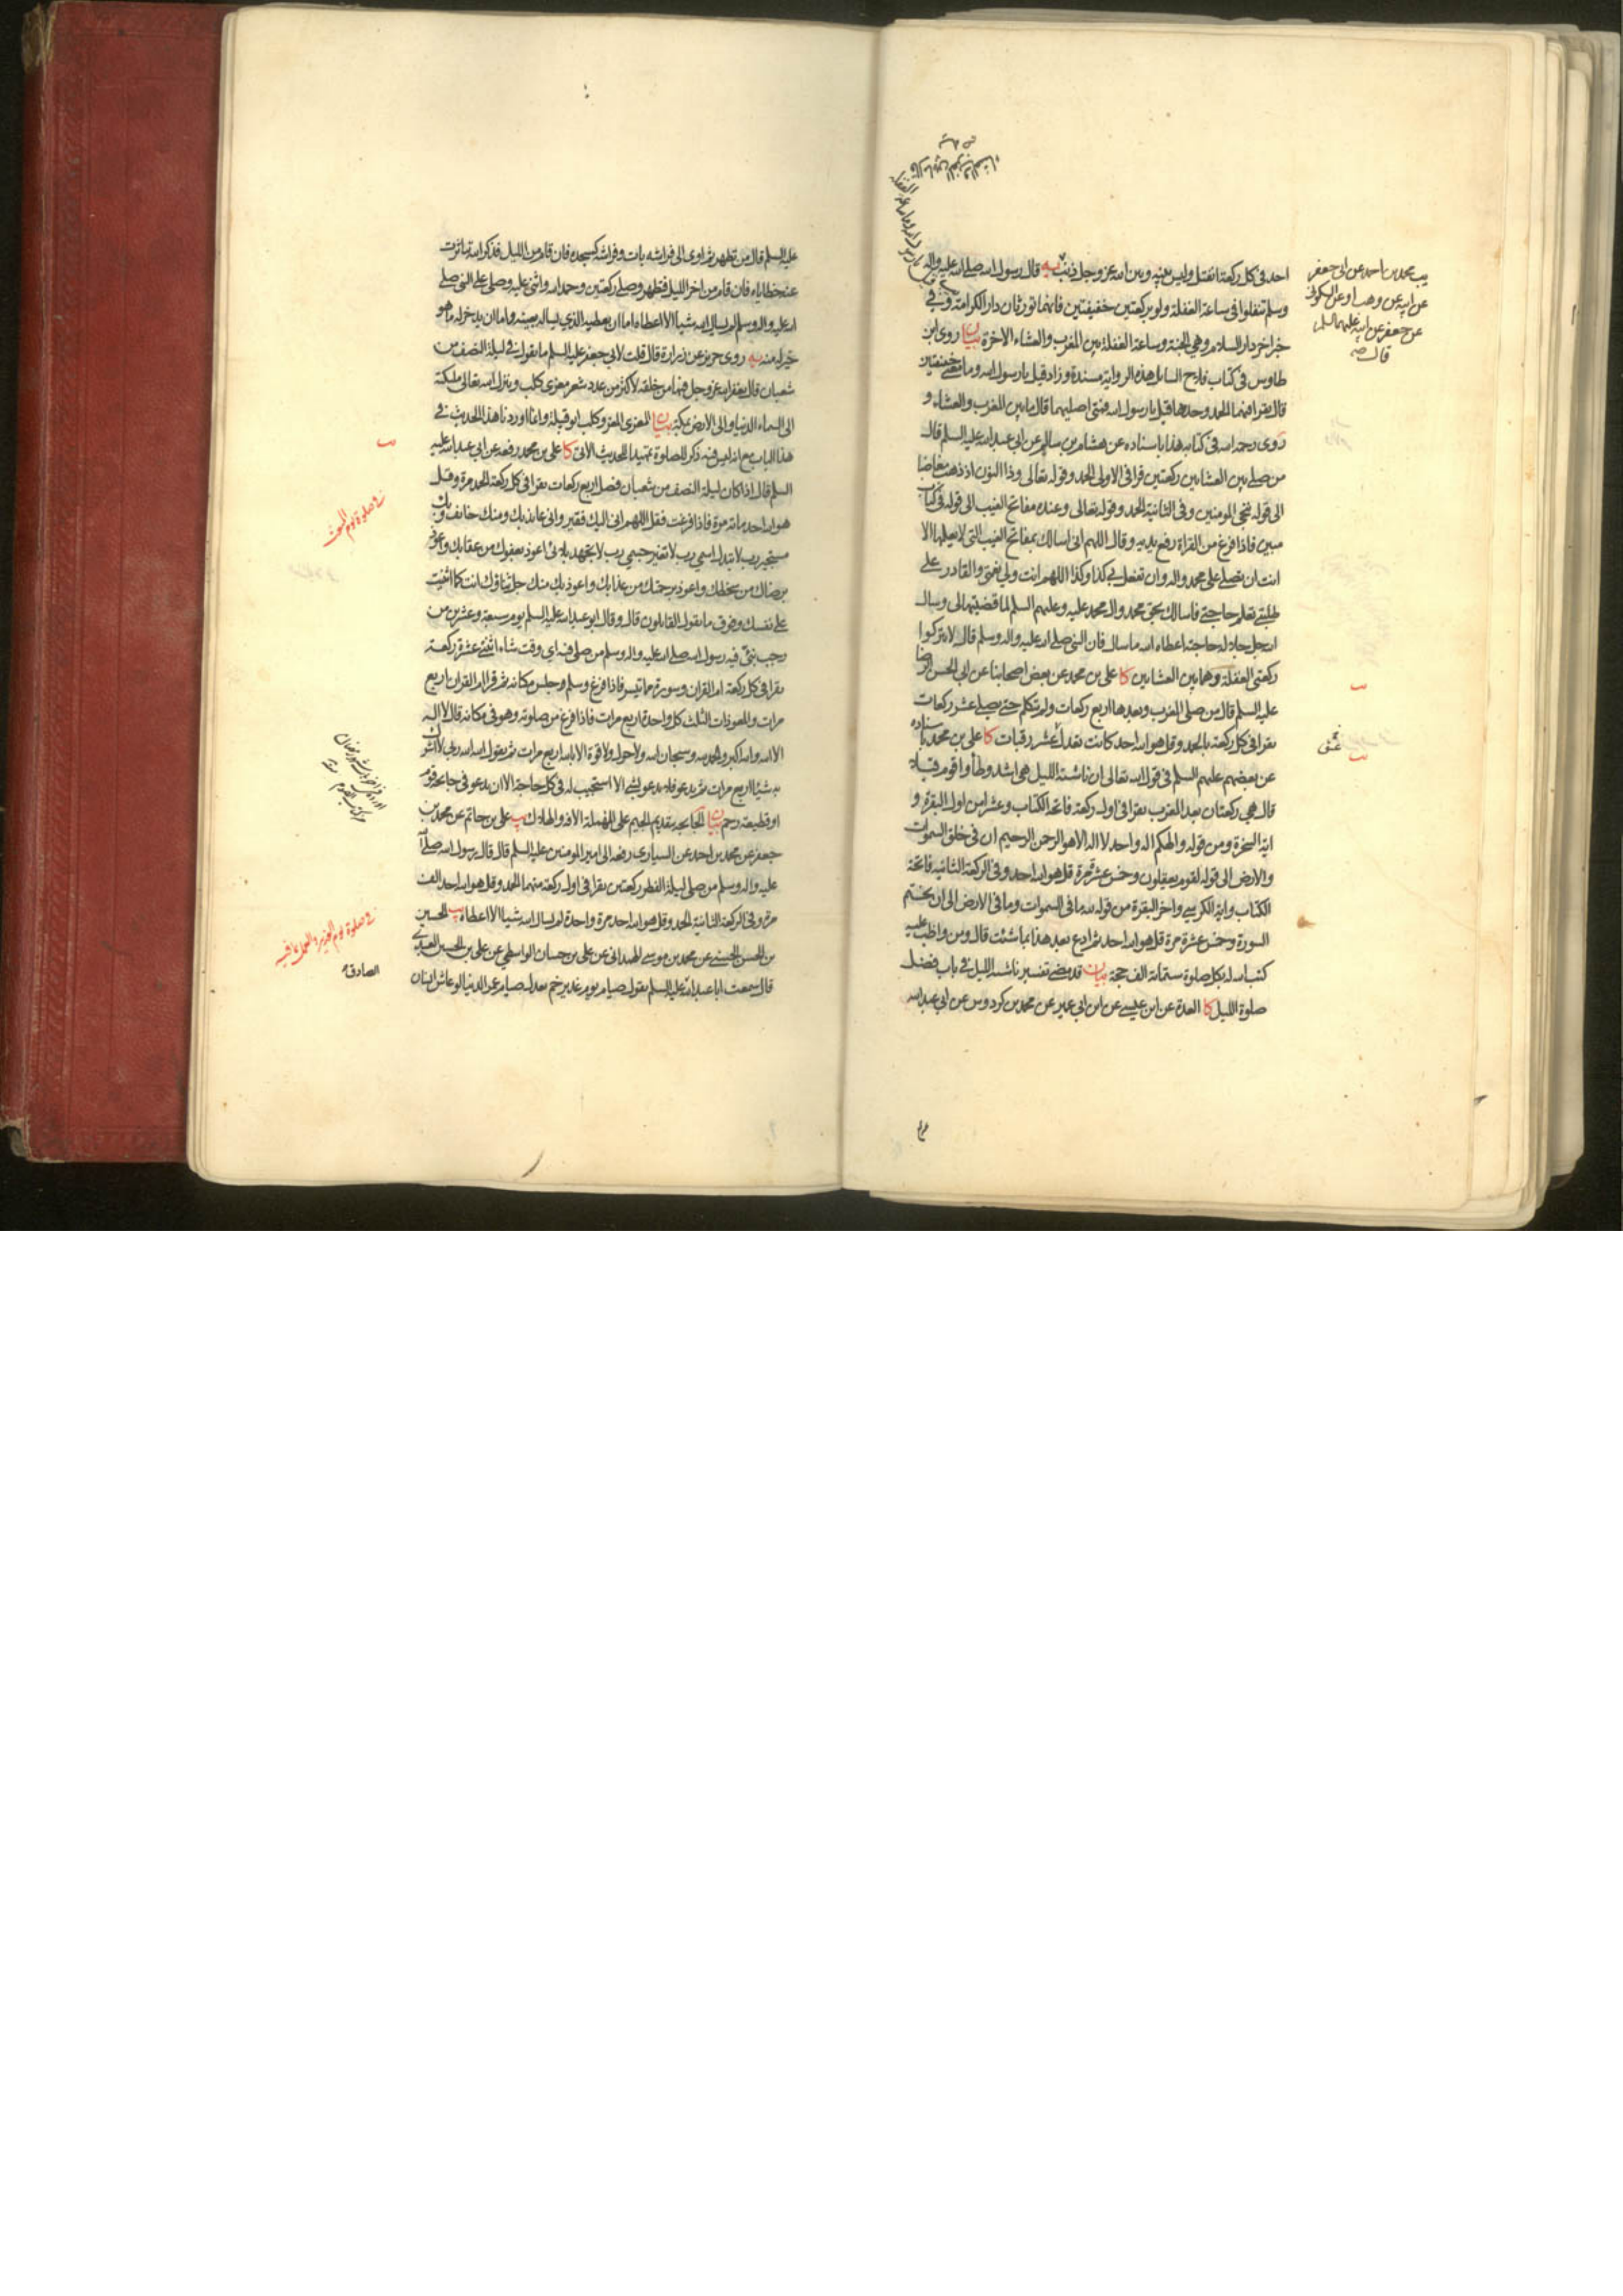 احد في كل ركعة انفتل وليس بينه وبين الله عز وجل ذنب يه قال رسول الله صلى الله عليه واله
وسلم تنفلوا في ساعة الغفلة ولو بركعتين خفيفتين فانهما تورثان دار الكرامة وفي
خبر اخر دار السلام وهي الجنة وساعة الغفلة بين المغرب والعشاء الاخرة بيان روى ابن
طاوس في كتاب فلاح السايل هذه الرواية مسندة وزاد قيل يا رسول الله وما معنى خفيفتين
قال يقرا فيهما الحمد وحدها قيل يا رسول الله فمتى اصليهما قال ما بين المغرب والعشاء و
روى رحمه الله في كتابه هذا باسناده عن هشام بن سالم عن ابي عبد الله عليه السلم قال
من صلى بين العشاءين ركعتين قرا في الاولى الحمد وقوله تعالى وذا النون اذ ذهب مغاضبا
الى قوله ننجي المومنين وفي الثانية الحمد وقوله تعالى وعنده مفاتح الغيب الى قوله في كتاب
مبين فاذا فرغ من القراة رفع يديه وقال اللهم اني اسالك بمفاتح الغيب التي لا يعلمها الا
انت ان تصلي على محمد واله وان تفعل بي كذا وكذا اللهم انت ولي نعمتي والقادر على
طلبتي تعلم حاجتي فاسالك بحق محمد وال محمد عليه وعليهم السلم لما قضيتها لي وسال
الله جل جلاله حاجته اعطاه الله ما سال فان النبي صلى الله عليه واله وسلم قال لا تتركوا
ركعتي الغفلة وهما بين العشاءين كا علي بن محمد عن بعض اصحابنا عن ابي الحسن الرضا
عليه السلم قال من صلى المغرب وبعدها اربع ركعات ولم يتكلم حتى يصلي عشر ركعات
يقرا في كل ركعة بالحمد وقل هو الله احد كانت تعدل عشر رقبات كا علي بن محمد باسناده
عن بعضهم عليهم السلم في قول الله تعالى ان ناشئة الليل هي اشد وطأ واقوم قيلا
قال هي ركعتان بعد المغرب يقرا في اول ركعة فاتحة الكتاب وعشرا من اول البقرة و
اية السخرة ومن قوله والهكم اله واحد لا اله الا هو الرحمن الرحيم ان في خلق السموات
والارض الى قوله لقوم يعقلون وخمس عشرة مرة قل هو الله احد وفي الركعة الثانية فاتحة
الكتاب واية الكرسي واخر البقرة من قوله لله ما في السموات وما في الارض الى ان يختم
السورة وخمس عشرة مرة قل هو الله احد ثم ادع بعد هذا بما شئت قال ومن واظب عليه
كتب الله له بكل صلوة ستمائة الف حجة بيان قد مضى تفسير ناشئة الليل في باب فضل
صلوة الليل كا العدة عن ابن عيسى عن ابن ابي عمير عن محمد بن كردوس عن ابي عبد الله
يب محمد بن احمد عن ابي جعفر
عن ابيه عن وهب او عن السكوني
عن جعفر عن ابيه عليهما السلم
قال
عليه السلم قال من تطهر ثم اوى الى فراشه بات وفراشه كمسجده فان قام من الليل فذكر الله تناثرت
عنه خطاياه فان قام من اخر الليل فتطهر وصلى ركعتين وحمد الله واثنى عليه وصلى على النبي صلى
الله عليه واله وسلم لم يسال الله شيئا الا اعطاه اما ان يعطيه الذي يساله بعينه واما ان يدخر له ما هو
خير له منه يه روى حريز عن زرارة قال قلت لابي جعفر عليه السلم ما تقول في ليلة النصف من
شعبان قال يغفر الله عز وجل فيها من خلقه لاكثر من عدد شعر معزى كلب وينزل الله تعالى ملئكته
الى السماء الدنيا والى الارض بمكة بيان المعزى المعز وكلب ابو قبيلة وانما اوردنا هذا الحديث في
هذا الباب مع انه ليس فيه ذكر للصلوة تمهيدا للحديث الاتي كا علي بن محمد رفعه عن ابي عبد الله عليه
السلم قال اذا كان ليلة النصف من شعبان فصل اربع ركعات تقرا في كل ركعة الحمد مرة وقل
هو الله احد مائة مرة فاذا فرغت فقل اللهم اني اليك فقير واني عايذ بك ومنك خايف وبك
مستجير رب لا تبدل اسمي رب لا تغير جسمي رب لا تجهد بلائي اعوذ بعفوك من عقابك واعوذ
برضاك من سخطك واعوذ برحمتك من عذابك واعوذ بك منك جل ثناؤك انت كما اثنيت
على نفسك وفوق ما يقول القايلون قال وقال ابو عبد الله عليه السلم يوم سبعة وعشرين من
رجب نبئ فيه رسول الله صلى الله عليه واله وسلم من صلى فيه اي وقت شاء اثنتي عشرة ركعة
يقرا في كل ركعة ام القران وسورة ما تيسر فاذا فرغ وسلم وجلس مكانه ثم قرا ام القران اربع
مرات والمعوذات الثلث كل واحدة اربع مرات فاذا فرغ من صلوته وهو في مكانه قال لا اله
الا الله والله اكبر والحمد لله وسبحان الله ولا حول ولا قوة الا بالله اربع مرات ثم يقول الله الله ربي لا اشرك
به شيئا اربع مرات ثم يدعو فلا يدعو بشيء الا استجيب له في كل حاجة الا ان يدعو في جايحة قوم
او قطيعة رحم بيان الجايحة بتقديم الجيم على المهملة الافة والهلاك يب علي بن حاتم عن محمد بن
جعفر عن محمد بن احمد عن السياري رفعه الى امير المومنين عليه السلم قال قال رسول الله صلى الله
عليه واله وسلم من صلى ليلة الفطر ركعتين يقرا في اول ركعة منهما الحمد وقل هو الله احد الف
مرة وفي الركعة الثانية الحمد وقل هو الله احد مرة واحدة لم يسال الله شيئا الا اعطاه يب الحسين
بن الحسن الحسني عن محمد بن موسى الهمداني عن علي بن حسان الواسطي عن علي بن الحسين العبدي
قال سمعت ابا عبد الله عليه السلم يقول صيام يوم غدير خم يعدل صيام عمر الدنيا لو عاش انسان
الصادق